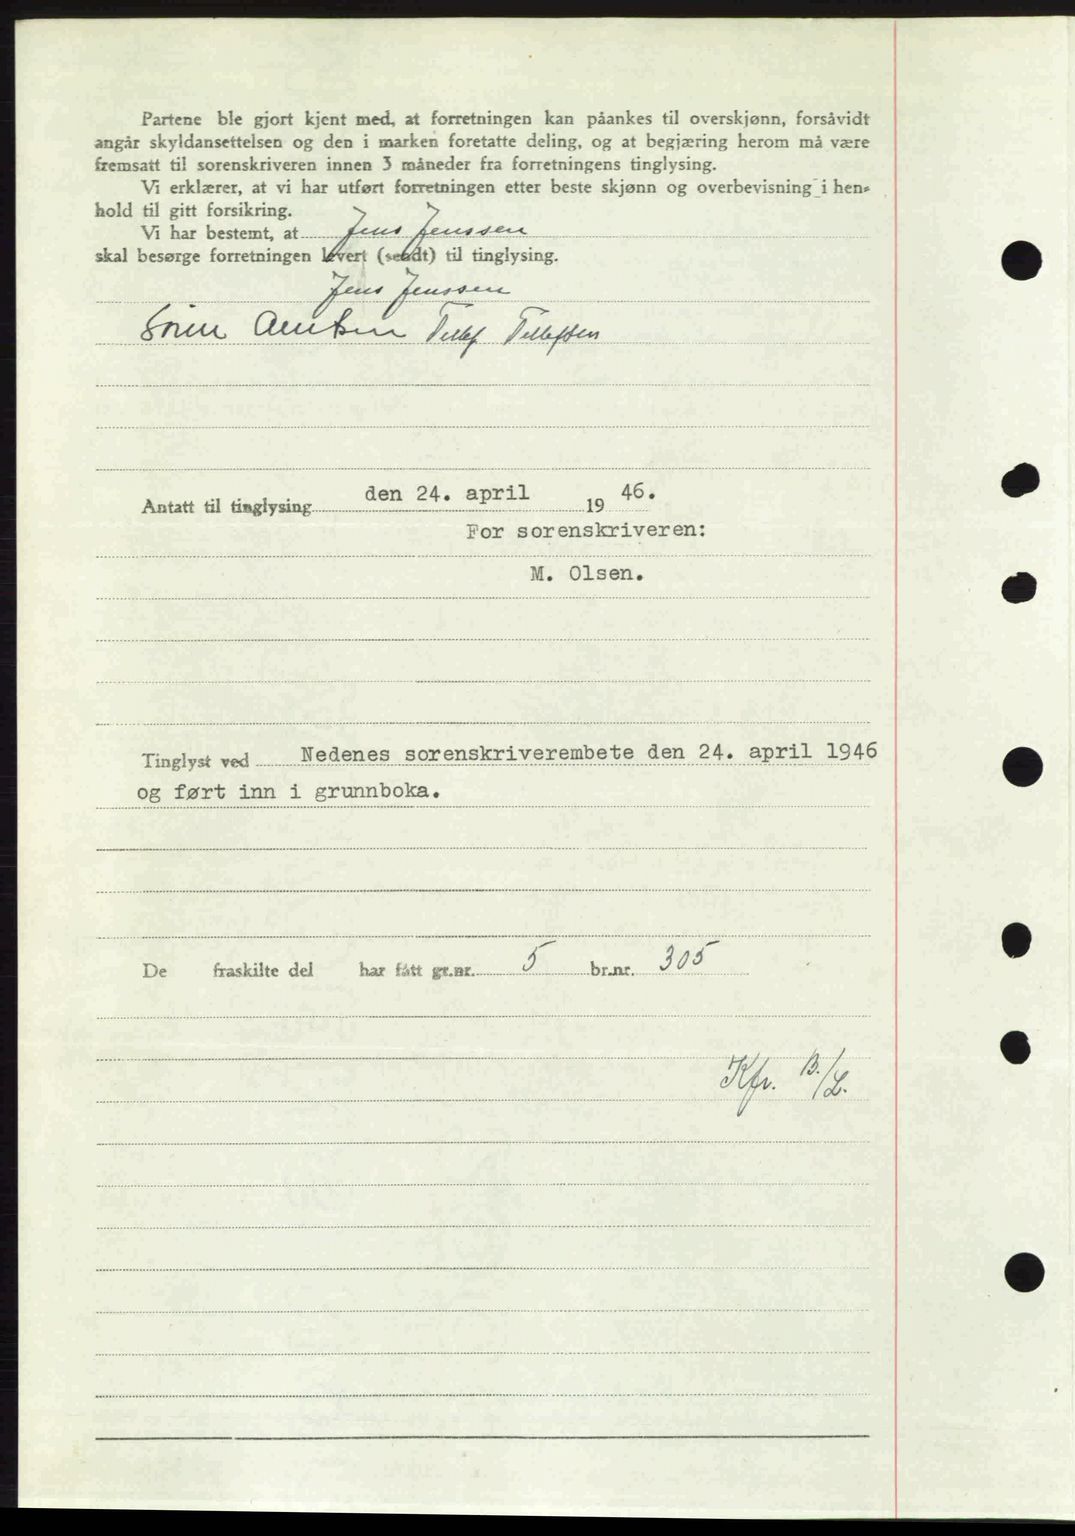 Partene ble gjort kjent med, at forretningen kan påankes til overskjønn, forsåvidt
angår skyldansettelsen og den i marken foretatte deling, og at begjæring herom må være
fremsatt til sorenskriveren innen 3 måneder fra forretningens tinglysing.
Vi erklærer, at vi har utført forretningen etter beste skjønn og overbevisning i hen-
hold til gitt forsikring.
Vi har bestemt, at Jens Jenssen
skal besørge forretningen levert (sendt) til tinglysing.
Jens Jenssen
Tellef Tellefsen
Antatt til tinglysing den 24. april 19 46.
For sorenskriveren:
M. Olsen.
Tinglyst ved Nedenes sorenskriverembete den 24. april 1946
og ført inn i grunnboka.
De fraskilte del har fått gr.nr. 5 br.nr. 305
Kfr. B./L.